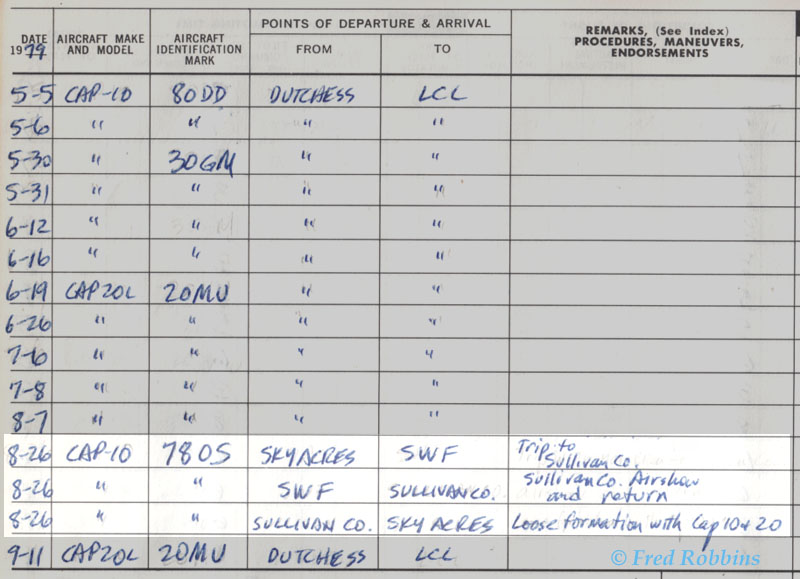 POINTS OF DEPARTURE & ARRIVAL
DATE 1979 AIRCRAFT MAKE AND MODEL AIRCRAFT IDENTIFICATION MARK FROM TO REMARKS, (See Index) PROCEDURES, MANEUVERS, ENDORSEMENTS
5-5 CAP-10 80DD DUTCHESS LCL
5-6 " " " "
5-30 " 30GM " "
5-31 " " " "
6-12 " " " "
6-16 " " " "
6-19 CAP20L 20MU " "
6-26 " " " "
7-6 " " " "
7-8 " " " "
8-7 " " " "
8-26 CAP-10 78OS SKY ACRES SWF Trip to Sullivan Co.
8-26 " " SWF SULLIVAN CO. Sullivan Co. Airshow and return
8-26 " " SULLIVAN CO. SKY ACRES Loose formation with Cap 10 & 20
9-11 CAP20L 20MU DUTCHESS LCL
© Fred Robbins